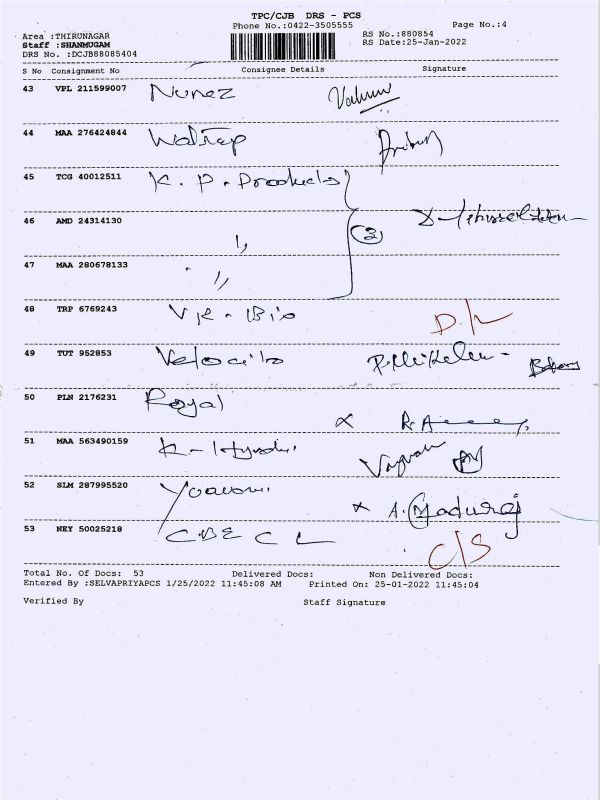 TPC/CJB DRS - PCS
Phone No.:0422-3505555
Page No.:4
Area :THIRUNAGAR
RS No.:880854
Staff :SHANMUGAM
RS Date:25-Jan-2022
DRS No. :DCJB88085404
S No Consignment No Consignee Details Signature
43 VPL 211599007 Nunez
44 MAA 276424844
45 TCG 40012511 K. P. Products
46 AMD 24314130 (3)
47 MAA 280678133
48 TRP 6769243 VR - Bio
49 TUT 952853
50 PLN 2176231 Royal
51 MAA 563490159
52 SLM 287995520 A. Maduraj
53 NEY 50025218 C/S
Total No. Of Docs: 53 Delivered Docs: Non Delivered Docs:
Entered By :SELVAPRIYAPCS 1/25/2022 11:45:08 AM Printed On: 25-01-2022 11:45:04
Verified By Staff Signature